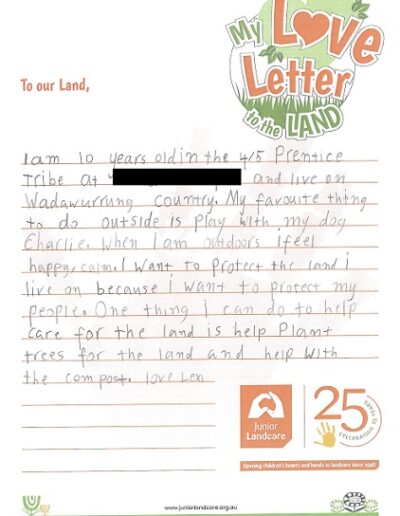 My Love
Letter
to the LAND
To our Land,
I am 10 years old in the 4/5 Prentice
Tribe at and live on
Wadawurrung country. My favourite thing
to do outside is play with my dog
Charlie. When I am outdoors ifeel
happy, calm. I want to protect the land i
live on because i want to protect my
people. One thing i can do to help
care for the land is help Plant
trees for the land and help with
the compost. love Lexi
Junior
Landcare
25 YEARS
CELEBRATING
Opening children's hearts and hands to landcare since 1998
www.juniorlandcare.org.au